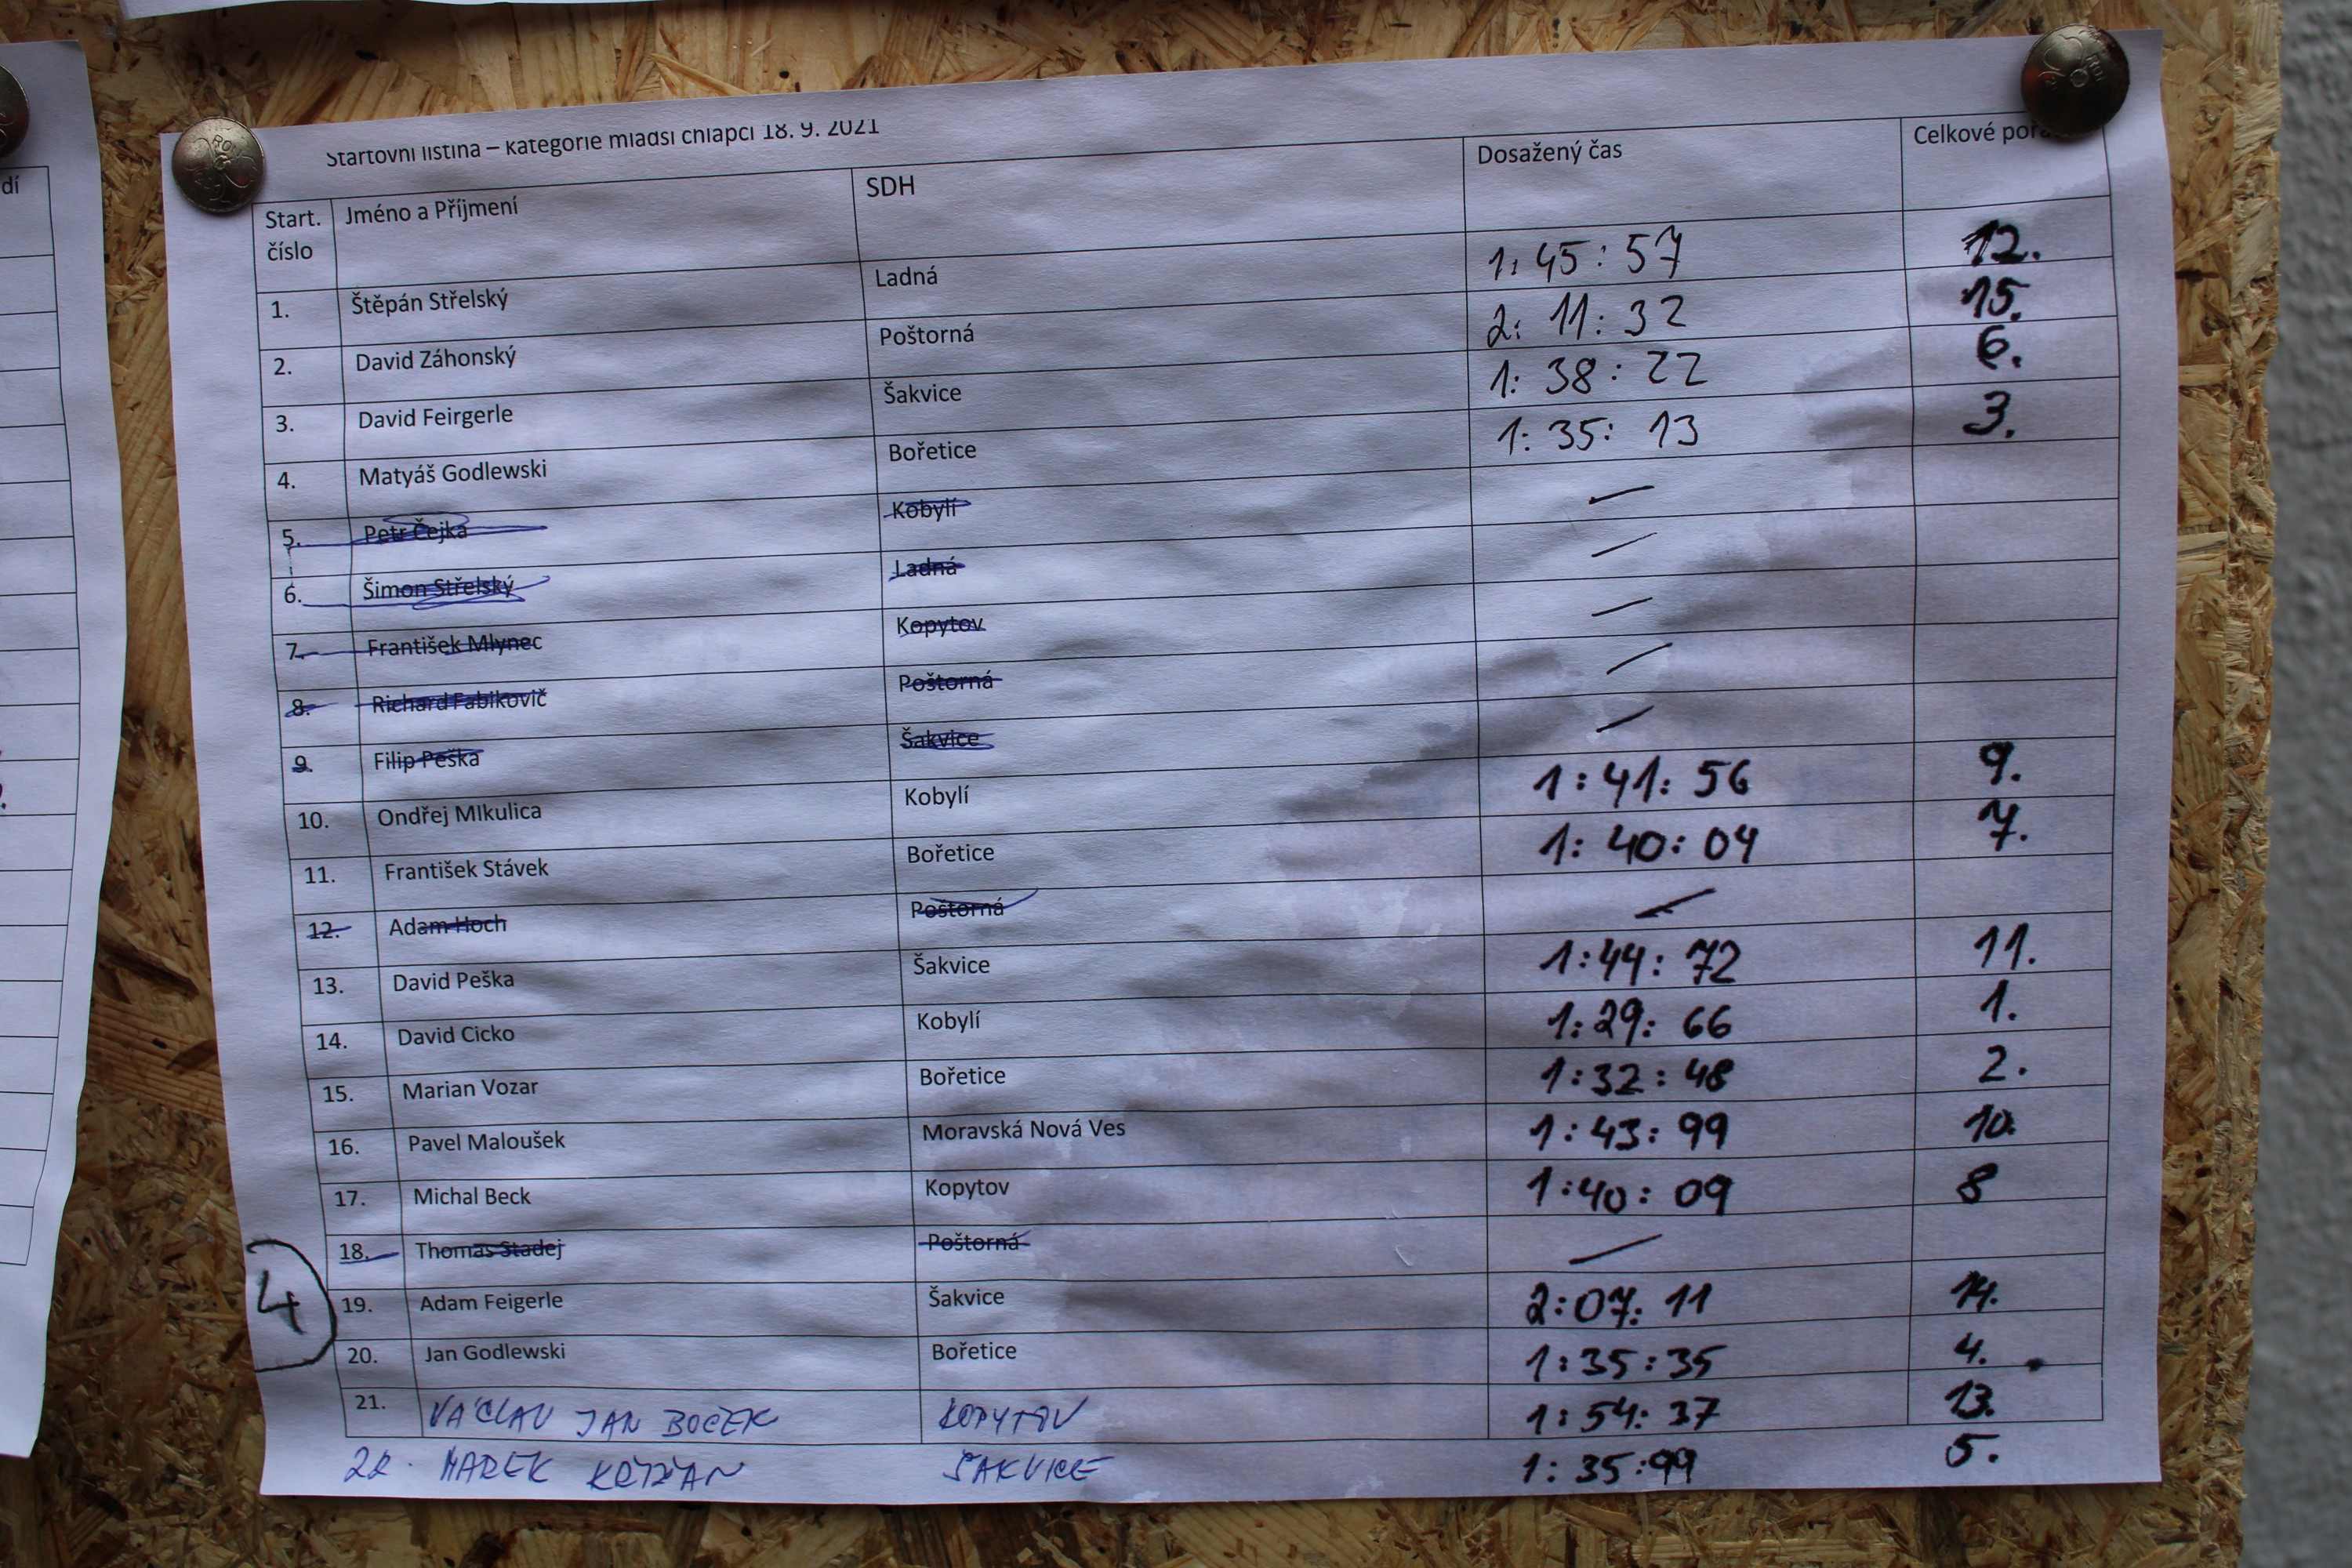 Startovní listina – kategorie mladší chlapci 18. 9. 2021
Start. číslo Jméno a Příjmení SDH Dosažený čas Celkové
1. Štěpán Střelský Ladná 1:45:57 12.
2. David Záhonský Poštorná 2:11:32 15.
3. David Feirgerle Šakvice 1:38:22 6.
4. Matyáš Godlewski Bořetice 1:35:13 3.
5. Petr Čejka Kobylí —
6. Šimon Střelský Ladná —
7. František Mlynec Kopytov —
8. Richard Fabikovič Poštorná —
9. Filip Peška Šakvice —
10. Ondřej MIkulica Kobylí 1:41:56 9.
11. František Stávek Bořetice 1:40:04 7.
12. Adam Hoch Poštorná —
13. David Peška Šakvice 1:44:72 11.
14. David Cicko Kobylí 1:29:66 1.
15. Marian Vozar Bořetice 1:32:48 2.
16. Pavel Maloušek Moravská Nová Ves 1:43:99 10.
17. Michal Beck Kopytov 1:40:09 8
18. Thomas Stadej Poštorná —
4
19. Adam Feigerle Šakvice 2:07:11 14.
20. Jan Godlewski Bořetice 1:35:35 4.
21. VÁCLAV JAN BOČEK KOPYTOV 1:54:37 13.
22. MAREK ŠAKVICE 1:35:99 5.
dí